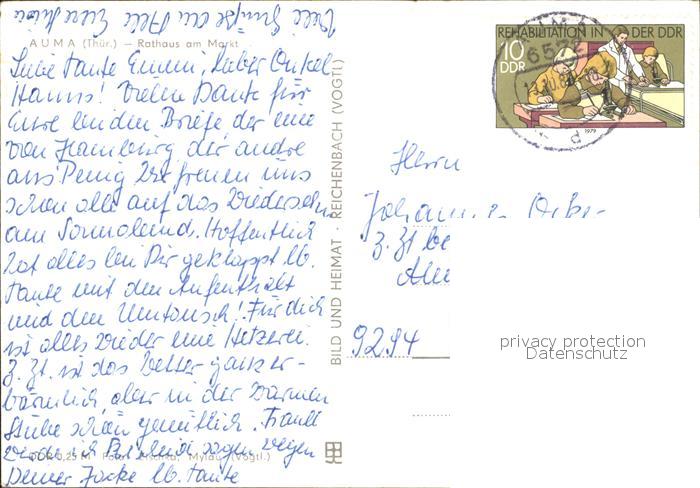 Viele Grüße an Alle Eure
AUMA (Thür.) — Rathaus am Markt
Liebe Tante Emmi, Lieber Onkel
Hanns! Vielen Dank für
Eure beiden Briefe, der eine
von Hamburg, der andre
aus Penig. Wir freuen uns
schon alle auf das Wiedersehn
am Sonnabend. Hoffentlich
hat alles bei Dir geklappt lb.
Tante mit dem Aufenthalt
und dem Umtausch! Für dich
ist alles wieder eine Hetzerei.
Z. Zt. ist das Wetter ganz er-
bärmlich, aber in der warmen
Stube schön gemütlich.
werde ich Bescheid sagen wegen
DDR 0,25 M Foto: Mylau (Vogtl.)
Deiner Jacke lb. Tante
BILD UND HEIMAT · REICHENBACH (VOGTL)
REHABILITATION IN DER DDR
10
DDR
1979
6572
d
Herrn
Z. Zt be
9294
privacy protection
Datenschutz